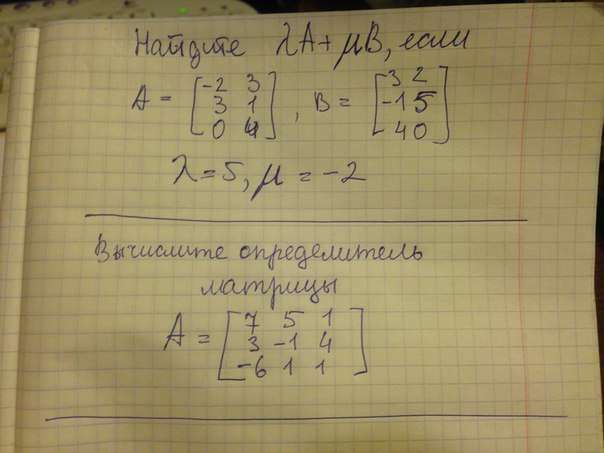 Найдите λA+μB, если
A = [-2 3; 3 1; 0 4], B = [3 2; -1 5; 4 0]
λ=5, μ = -2
Вычислите определитель
матрицы
A = [7 5 1; 3 -1 4; -6 1 1]